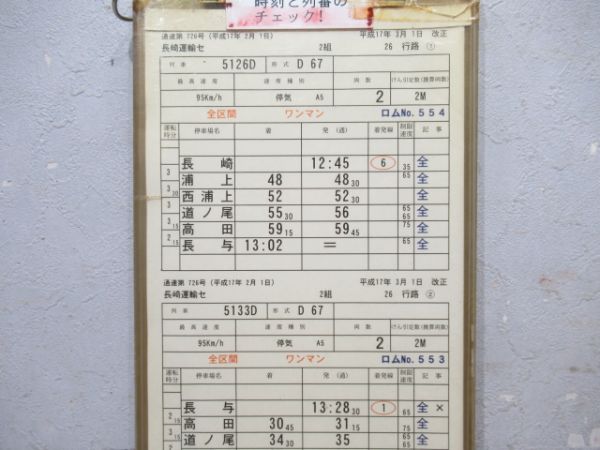 時刻と列番の
チェック!
達達第 726号 (平成17年 2月 1日) 平成17年 3月 1日 改正
長崎運輸セ 2組 26 行路 ①
列車 5126D 形式 D 67
最高速度 速度種別 両数 けん引定数(換算両数)
95Km/h 停気 A5 2 2M
全区間 ワンマン ロムNo.554
運転時分 停車場名 着 発 (通) 着発線 制限速度 記事
長崎 12:45 6 35 全
3 浦上 48 48 30 65 全
3 30 西浦上 52 52 30 全
3 道ノ尾 55 30 56 65 65 全
3 15 高田 59 15 59 45 75 全
2 15 長与 13:02 = 65 全
達達第 726号 (平成17年 2月 1日) 平成17年 3月 1日 改正
長崎運輸セ 2組 26 行路 ②
列車 5133D 形式 D 67
最高速度 速度種別 両数 けん引定数(換算両数)
95Km/h 停気 A5 2 2M
全区間 ワンマン ロムNo.553
運転時分 停車場名 着 発 (通) 着発線 制限速度 記事
長与 13:28 30 1 65 全 ×
2 15 高田 30 45 31 15 75 全
3 15 道ノ尾 34 30 35 65 65 全